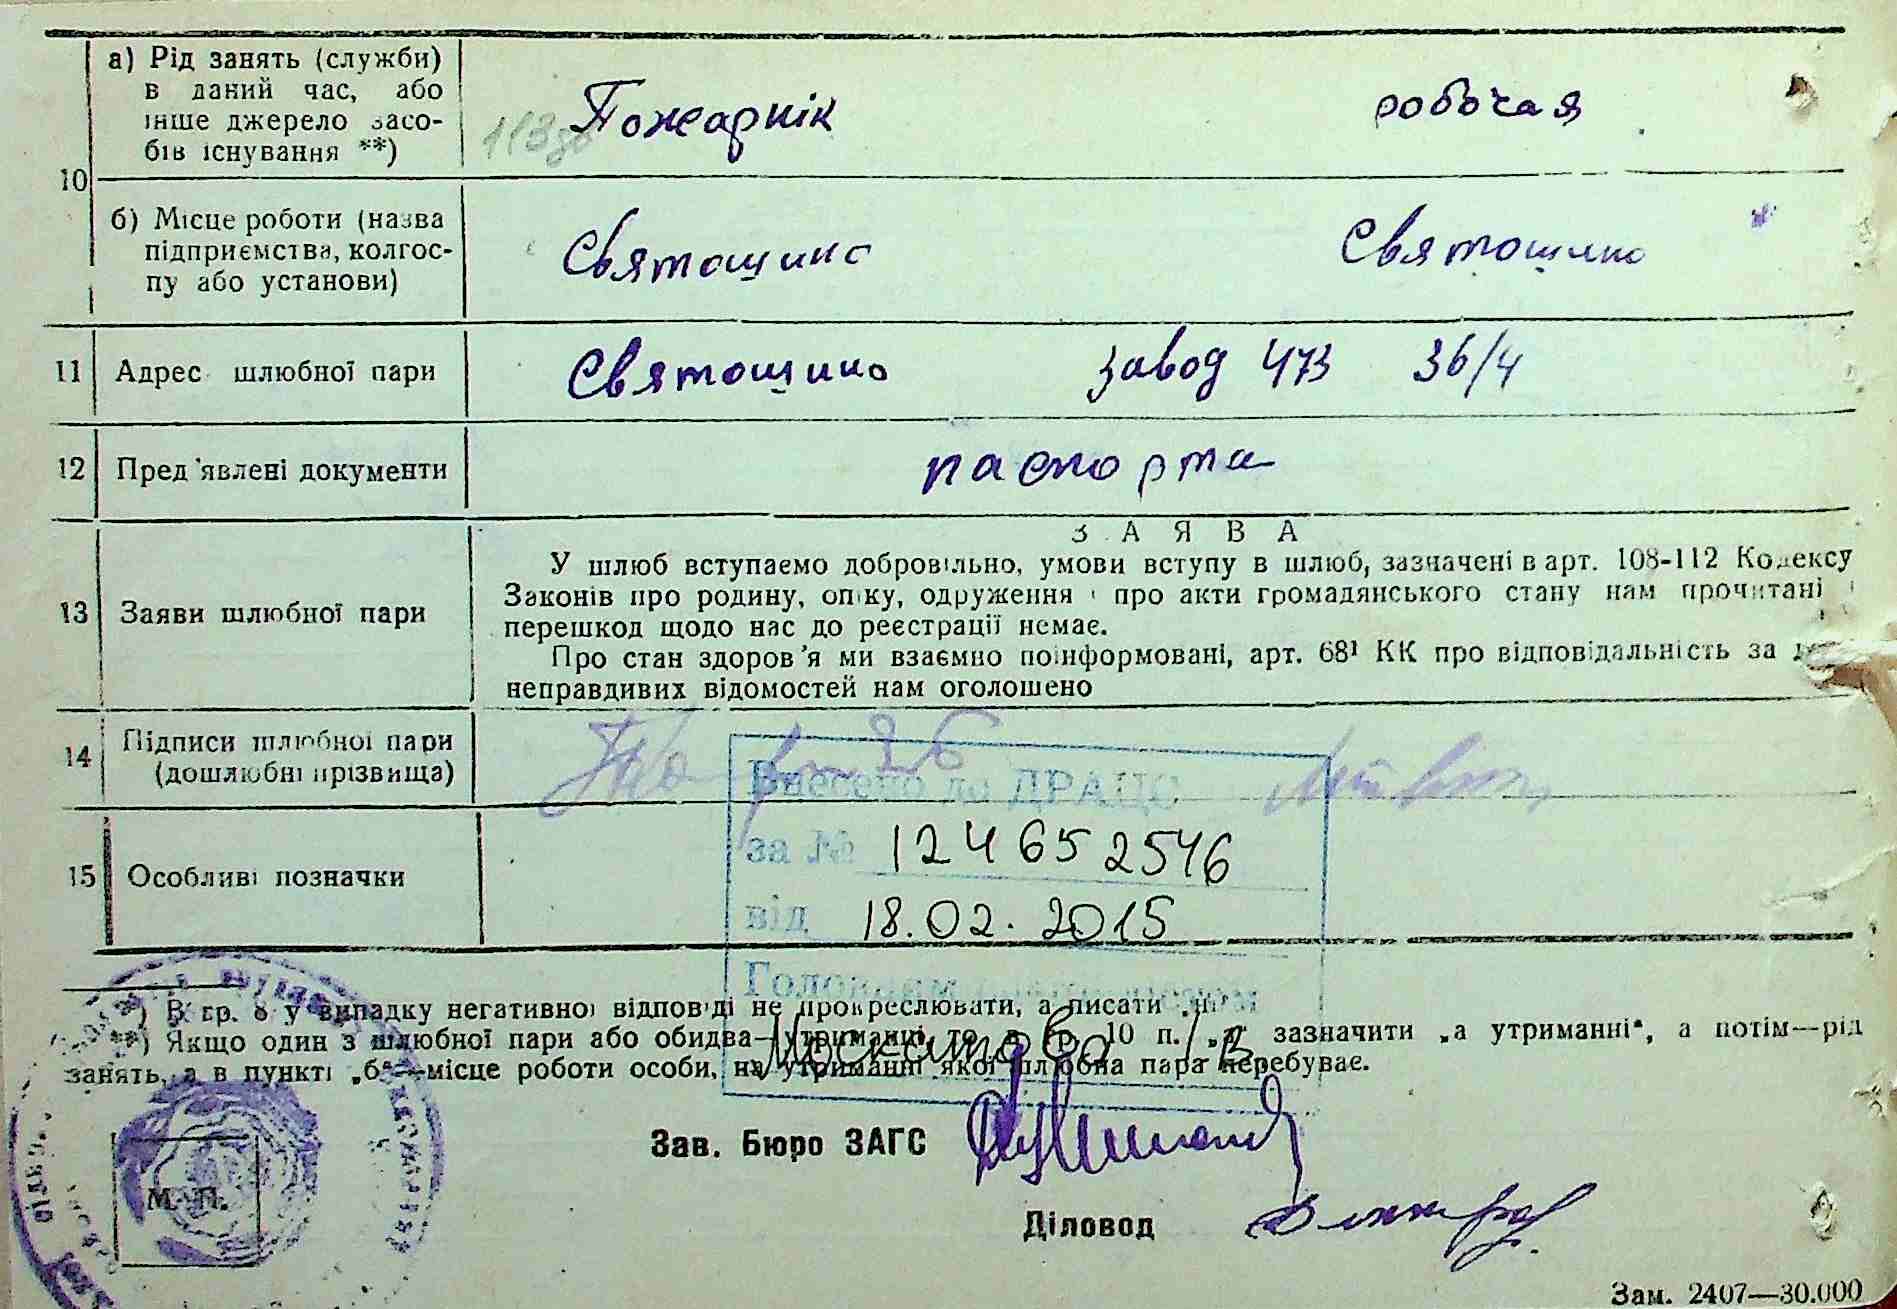 10
а) Рід занять (служби)
в даний час, або
інше джерело засо-
бів існування **)
113 Пожарнік робочая
б) Місце роботи (назва
підприємства, колгос-
пу або установи)
Святошино Святошино
11 Адрес шлюбної пари Святошино завод 473 36/4
12 Пред'явлені документи паспорта
13 Заяви шлюбної пари
ЗАЯВА
У шлюб вступаємо добровільно, умови вступу в шлюб, зазначені в арт. 108-112 Кодексу
Законів про родину, опіку, одруження і про акти громадянського стану нам прочитані і
перешкод щодо нас до реєстрації немає.
Про стан здоров'я ми взаємно поінформовані, арт. 68¹ КК про відповідальність за
неправдивих відомостей нам оголошено
14 Підписи шлюбної пари
(дошлюбні прізвища)
Внесено до ДРАЦС
за № 124652546
15 Особливі позначки
від 18.02.2015
Головним
*) В гр. 8 у випадку негативної відповіді не прокреслювати, а писати „ні“
**) Якщо один з шлюбної пари або обидва—утриманці, то в гр. 10 п. „а“ зазначити „а утриманні“, а потім—рід
занять, а в пункті „б“—місце роботи особи, на утриманні якої шлюбна пара перебуває.
Москатова
Зав. Бюро ЗАГС
М. П.
Діловод
Зам. 2407—30.000